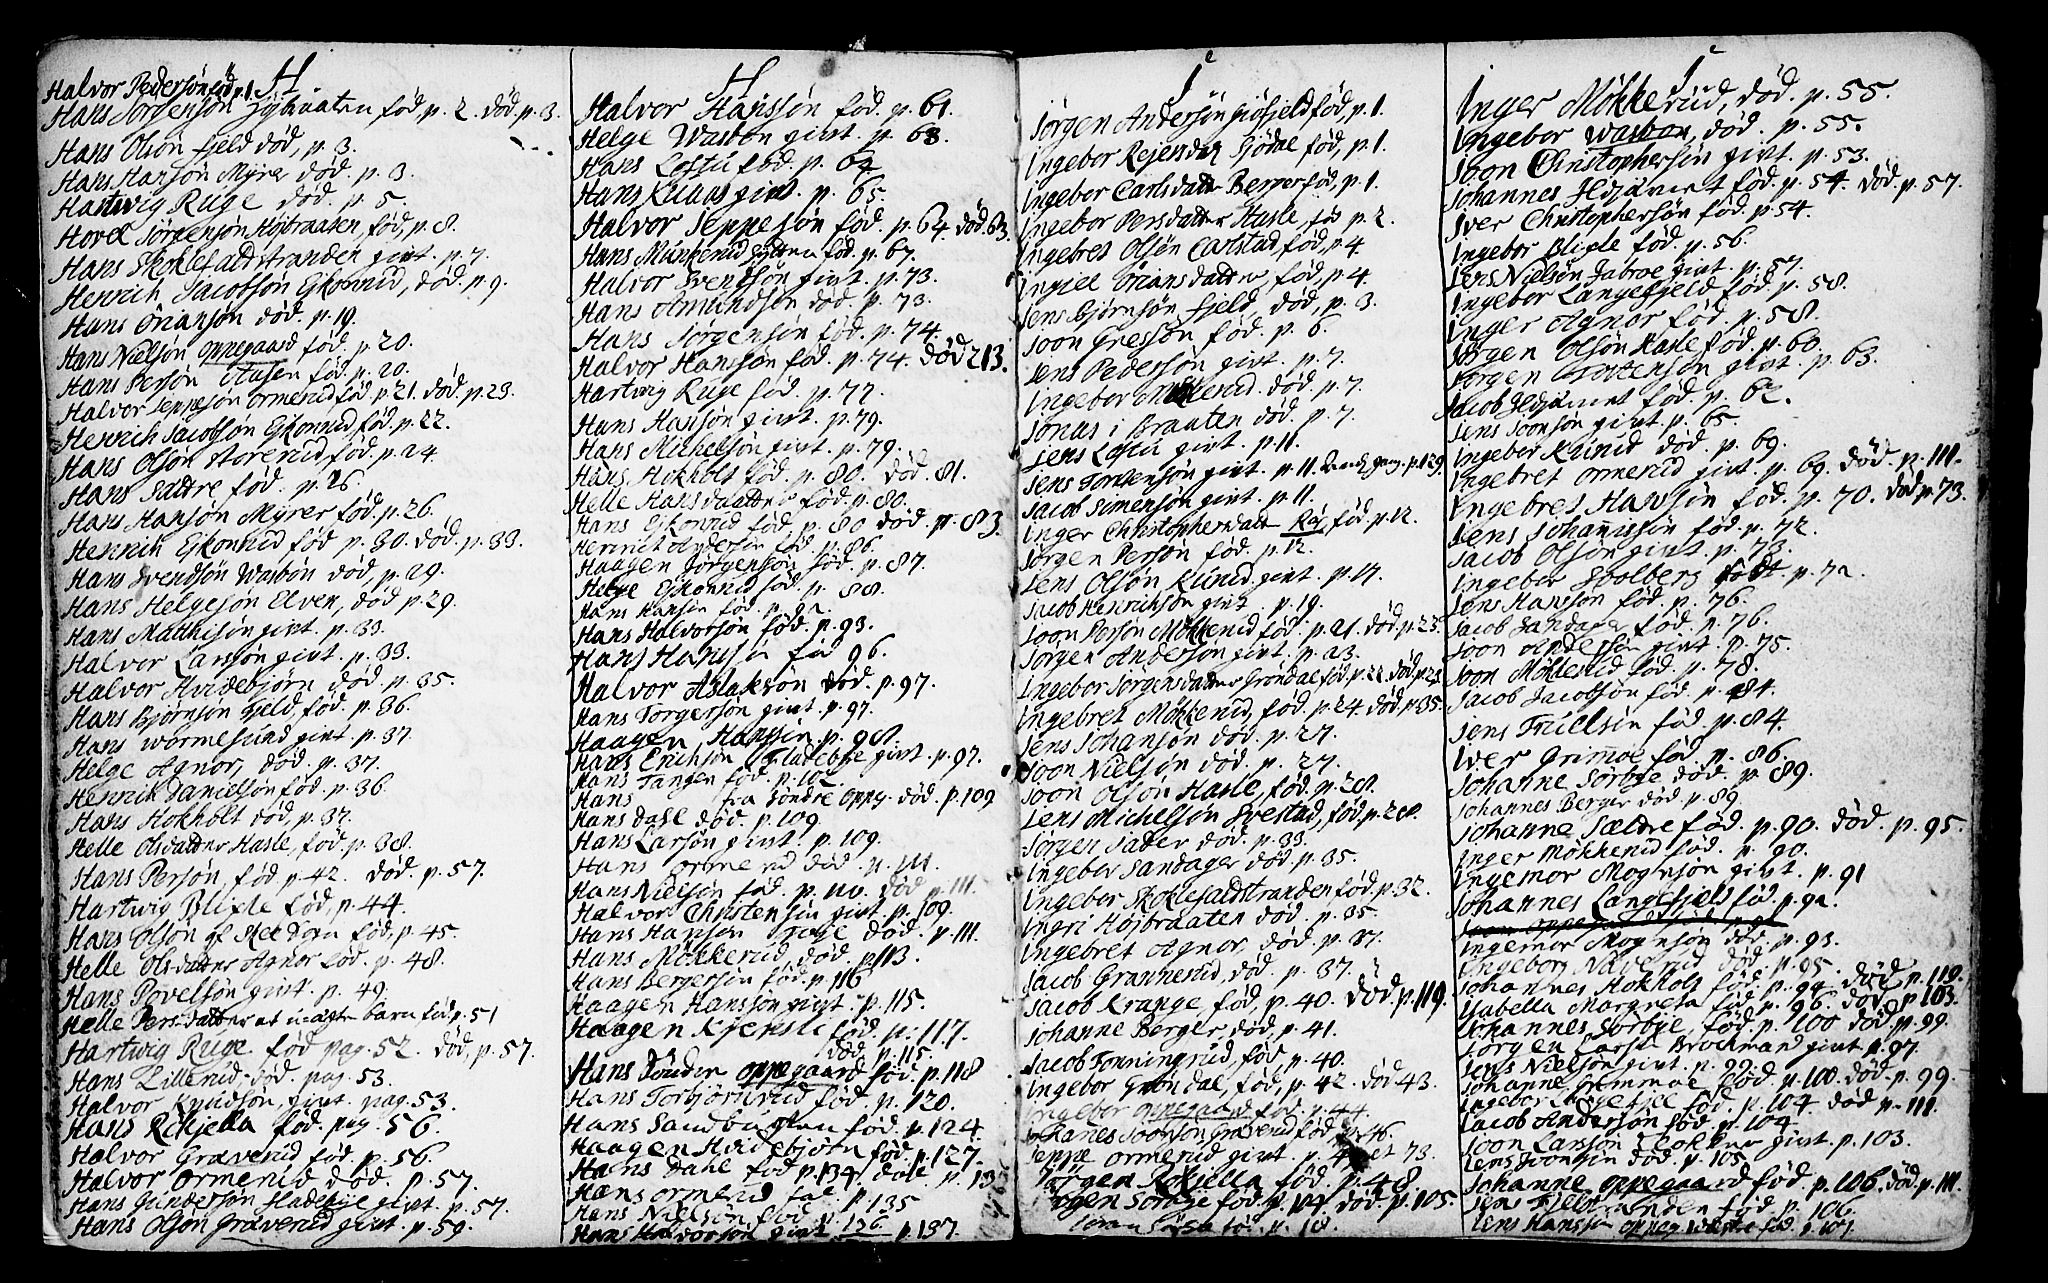 H
Halvor Pedersøn fød p.1.
Hans Jørgensøn fød p. 2. død. p. 3.
Hans Olsøn fjeld død, p. 3.
Hans Hansøn Myrer død. p. 3.
Hartwig Ruge død. p. 5.
Hovel Jørgensøn Højbraaten, fød, p. 8.
Hans Skoklefaldstranden givt. p. 7.
Henrich Jacobsøn Ejkornrud, død. p. 9.
Hans Øriansøn død. p. 19.
Hans Nielsøn oppegaard fød. p. 20.
Hans Persøn fød. p. 20.
Halvor Jeppesøn Ormerud fød p. 21. død. p. 23.
Henrich Jacobsøn Ejkornrud fød. p. 22.
Hans Olsøn fød. p. 24.
Hans Sættre fød. p. 26.
Hans Hansøn Myrer fød. p. 26.
Henrich Ejkornrud fød p. 30. død. p. 33.
Hans Svendsøn Wasbøn død, p. 29.
Hans Helgesøn Elven, død p. 29.
Hans Matthisøn givt. p. 33.
Halvor Larssøn givt. p. 33.
Halvor Hvidebjørn død p. 35.
Hans Bjørnsøn fjeld, fød. p. 36.
Hans wormesund givt. p. 37.
Helge Agnor, død. p. 37.
Henrich Danielsøn fød. p. 36.
Hans Hokholt død, p. 37.
Helle Olsdatter Hasle, fød. p. 38.
Hans Persøn fød p. 42. død. p. 57.
Hartwig Blixle fød, p. 44.
Hans Olsøn fød, p. 45.
Helle Olsdatter Agnor fød. p. 48.
Hans Povelsøn givt. p. 49.
Helle Persdatter et uægte barn fød. p. 51
Hartwig Ruge fød pag. 52. død, p. 57.
Hans Lillerud død. pag. 53.
Halvor Knudsøn, givt. pag. 53.
Hans Rekjella fød. pag. 56.
Halvor Graverud fød. p. 56.
Halvor Ormerud død. p. 57.
Hans Gundersøn givt. p. 57.
Hans Olsøn Graverud givt. p. 59.
H
Halvor Hanssøn fød. p. 61.
Helge Wasbøn givt. p. 63.
Hans Loftu fød. p. 64
Hans Knaas givt. p. 65.
Halvor Jeppesøn fød. p. 64 død. 63.
Hans Munkerud fød. p. 67.
Halvor Svendsøn givt. p. 73.
Hans Amundsøn død. p. 73.
Hans Jørgensøn fød. p. 74.
Halvor Hanssøn fød. p. 74. død 213.
Hartwig Ruge fød. p. 77.
Hans Hansøn givt. p. 79.
Hans Michelsøn givt. p. 79.
Hans Hokholt fød. p. 80. død. 81.
Helle Hansdaatter fød p. 80.
Hans Ejkornrud fød. p. 80 død. p. 83.
Henrich Andersøn fød p. 86.
Haagen Jørgensøn fød. p. 87.
Helge Ejkornrud fød. p. 88.
Hans Hansøn fød. p. 92.
Hans Halvorsøn fød. p. 93.
Hans Hanssøn fød 96.
Halvor Aslaksøn død. p. 97.
Hans Torgersøn givt. p. 97.
Haagen Hanssøn p. 98.
Hans Erichsøn Fladebye givt. p. 97.
Hans Tangen fød. p. 102
Hans fra Søndre oppg. død. p. 109
Hans Dahl død. p. 109
Hans Larsøn givt. p. 109.
Hans Ormerud død p. 111
Hans Nielsøn fød. p. 110. død p. 111.
Halvor Christensøn givt. p. 109.
Hans Hansøn død. p. 111.
Hans Møkkerud, død. p. 113.
Hans Bergersøn fød. p 116
Haagen Hanssøn givt. p. 115.
Haagen Kjensli fød. p. 117.
død p. 115.
Hans Sønder oppegaard fød. p. 118
Hans Torbjørnrud fød. p. 120.
Hans Sandbugten fød. p. 124.
Haagen Hvidebjørn fød. p. 127.
Hans Dahl fød p. 134. p. 13
Hans ormerud p. 135
Hans Nielsøn
Hans Halvorsøn givt 136 p. 137.
I
Jørgen Andersøn fød, p. 1.
Ingebor fød, p. 1.
Ingebor Carlsdatter Berger fød, p. 1.
Ingebor Persdatter Hasle, fød p. 2.
Ingebret Olsøn Carlstad fød, p. 4.
Ingiel Ørians datter, fød, p. 4.
Jens Bjørnsøn fjeld, død, p. 3.
Joon Gressøn fød. p. 6.
Jens Pedersøn givt. p. 7.
Ingebor død. p. 7.
Jonas i Braaten død. p. 7.
Jens Loftu givt. p. 11.
Jens Torstensøn givt. p. 11. anden gang. p. 129.
Jacob Simensøn givt. p. 11.
Inger Christophersdatt Røj fød. p. 12.
Jørgen Persøn fød. p. 12.
Jens Olsøn Kurud givt. p. 17.
Jacob Henrichsøn givt. p. 19.
Joon Persøn Møkkerud fød. p. 21. død. p. 23.
Jørgen Andersøn givt. p. 23.
Ingebor Jørgensdatter Grøndal fød. p. 22 død. p. 23
Ingebret Møkkerud, fød. p. 24. død. p. 35.
Jens Johansøn død. p. 27.
Joon Nielsøn død. p. 27.
Joon Olsøn Hasle, fød. p. 28.
Jens Michelsøn Svestad, fød, p. 28.
Jørgen Sæter død. p. 33.
Ingebor Sandager død. p. 35.
Ingebor Skoklefaldstranden fød. p. 32.
Ingri Højbraaten død. p. 35.
Ingebret Agnor, død. p. 37.
Jacob Grannerud, død. p. 37.
Jacob Krange, fød, p. 40. død. p. 119.
Johanne Berger, død, p. 41.
Jacob Tonningrud, fød, p. 40.
Ingebor Grøndal, fød, p. 42. død 43.
Ingebor oppegaard fød. p. 44.
Johanes Joonsøn Graverud fød p. 46.
Jeppe ormerud givt. p. et 73.
Jørgen Rekjella fød. p. 48.
Jørgen Sørbje fød. p. 104. død. p. 105.
I
Inger Møkkerud, død. p. 55.
Ingebor Wasbøn, død. p. 55.
Joon Christophersøn givt. p. 53.
Johannes fød. p. 54. død. p. 57.
Iver Christophersøn fød. p. 54.
Ingebor Blixle fød. p. 56.
Jens Nielsøn givt. p. 57.
Ingebor Langefjeld fød. p. 58.
Inger Agnor fød p. 58.
Jørgen Olsøn Hasle fød. p. 60.
Jørgen Torstensøn givt. p. 63.
Jacob fød. p. 62.
Jens Joonsøn givt. p. 65.
Ingebor Kurud død. p. 69.
Ingebret ormerud givt. p. 69. død p. 111.
Ingebret Hansøn fød. p. 70. død p. 73.
Jens Johannissøn fød. p. 72.
Jacob Olsøn givt. p. 73.
Ingebor Stolberg født. p. 72.
Jens Hansøn fød. p. 76.
Jacob Sandager fød. p. 76.
Joon Andersøn givt. p. 75.
Joon Møkkerud fød. p. 78.
Jacob Jacobsøn fød. p. 84.
Jens Truelsøn fød. p. 84.
Iver Grimoe fød. p. 86.
Johanne Sørbye død. p. 89.
Johannes Berger død p. 89.
Johanne Sældre fød. p. 90. død. p. 95.
Inger Møkkerud fød. p. 90.
Ingemor Mognsøn givt. p. 91
Johannes Langefjeld fød. p. 92.
Ingemor Mognsøn død p. 93.
Ingeborg Naverud død p. 95.
Johannes Hokholt fød. p. 94 død p. 119.
Isabella Margreta fød p. 96. død p 103.
Johannes Sørbye, fød. p. 100 død p. 99.
Jørgen Larss Brochmand givt p. 97.
Jens Nielsøn givt. p. 99.
Johanne Gremmoe fød p. 100. død. p. 99.
Ingebor Langefjel fød. p. 104 død p. 111.
Jacob Andersøn fød p. 104.
Joon Larsøn givt. p. 103.
Jens Joonsøn død. p. 105
Johanne oppegaard fød p. 106. død. p. 111.
Jens fød p. 106
Jens Hanssøn oppeg. fød. p. 107.